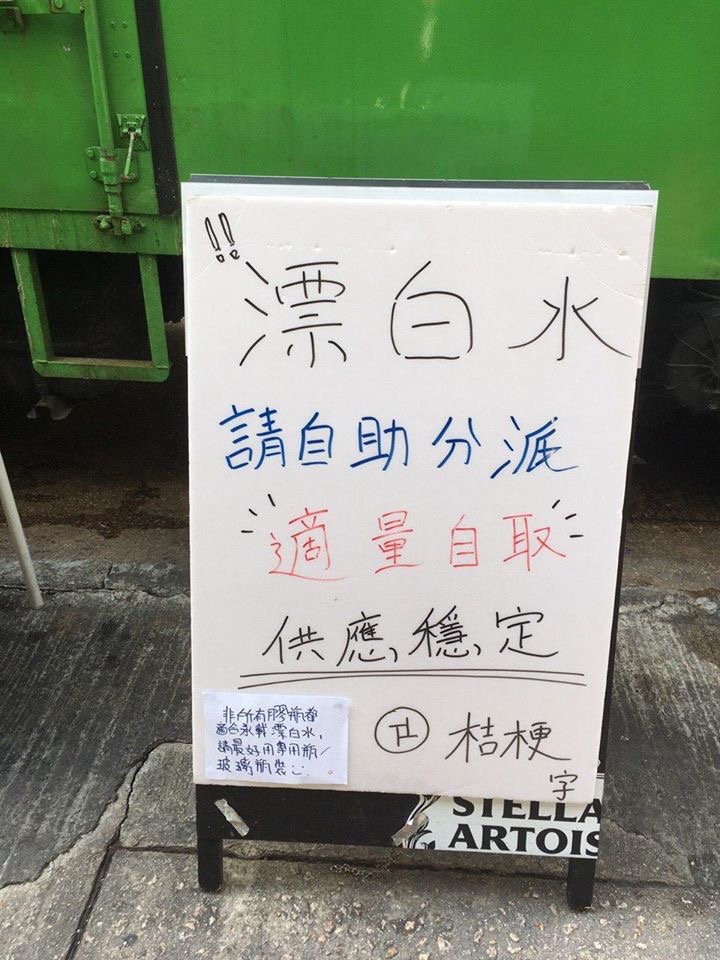 !!
漂白水
請自助分派
適量自取
供應穩定
非所有膠瓶都
適合承載漂白水,
請最好用專用瓶/
玻璃瓶裝
桔梗
字
STELLA
ARTOIS